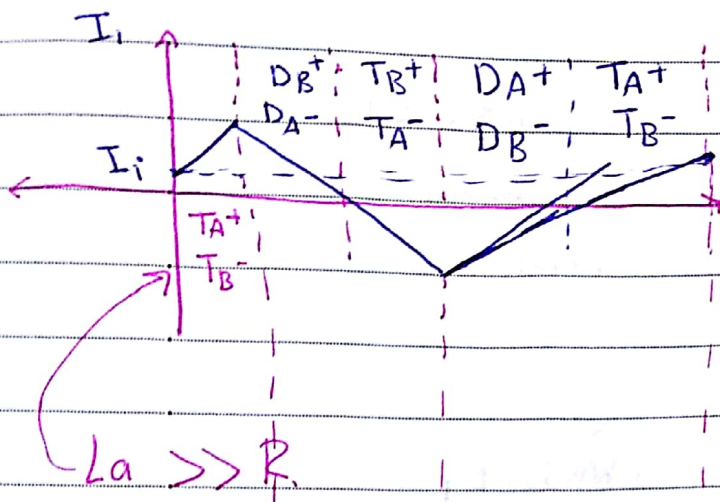 I₁
DB+ TB+ DA+ TA+
DA- TA- DB- TB-
Ii
TA+
TB-
La >> R.